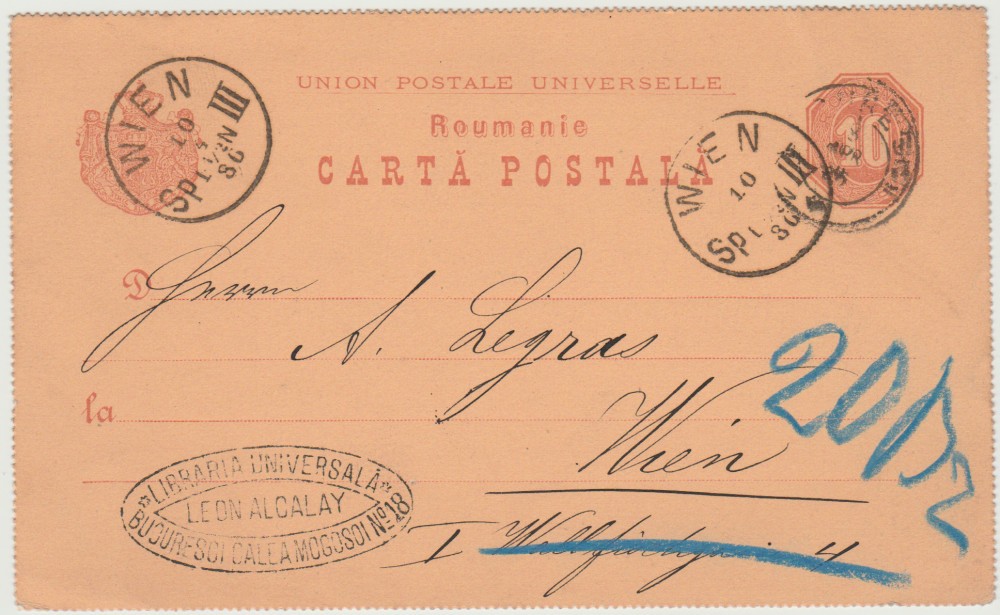 UNION POSTALE UNIVERSELLE
Roumanie
CARTĂ POSTALĂ
10
WIEN III
10
80
WIEN III
10
80
D Herrn
A. Legras
la
Wien
I 4
20
LIBRARIA UNIVERSALĂ
LEON ALCALAY
BUCURESCI CALEA MOGOSOI No 18